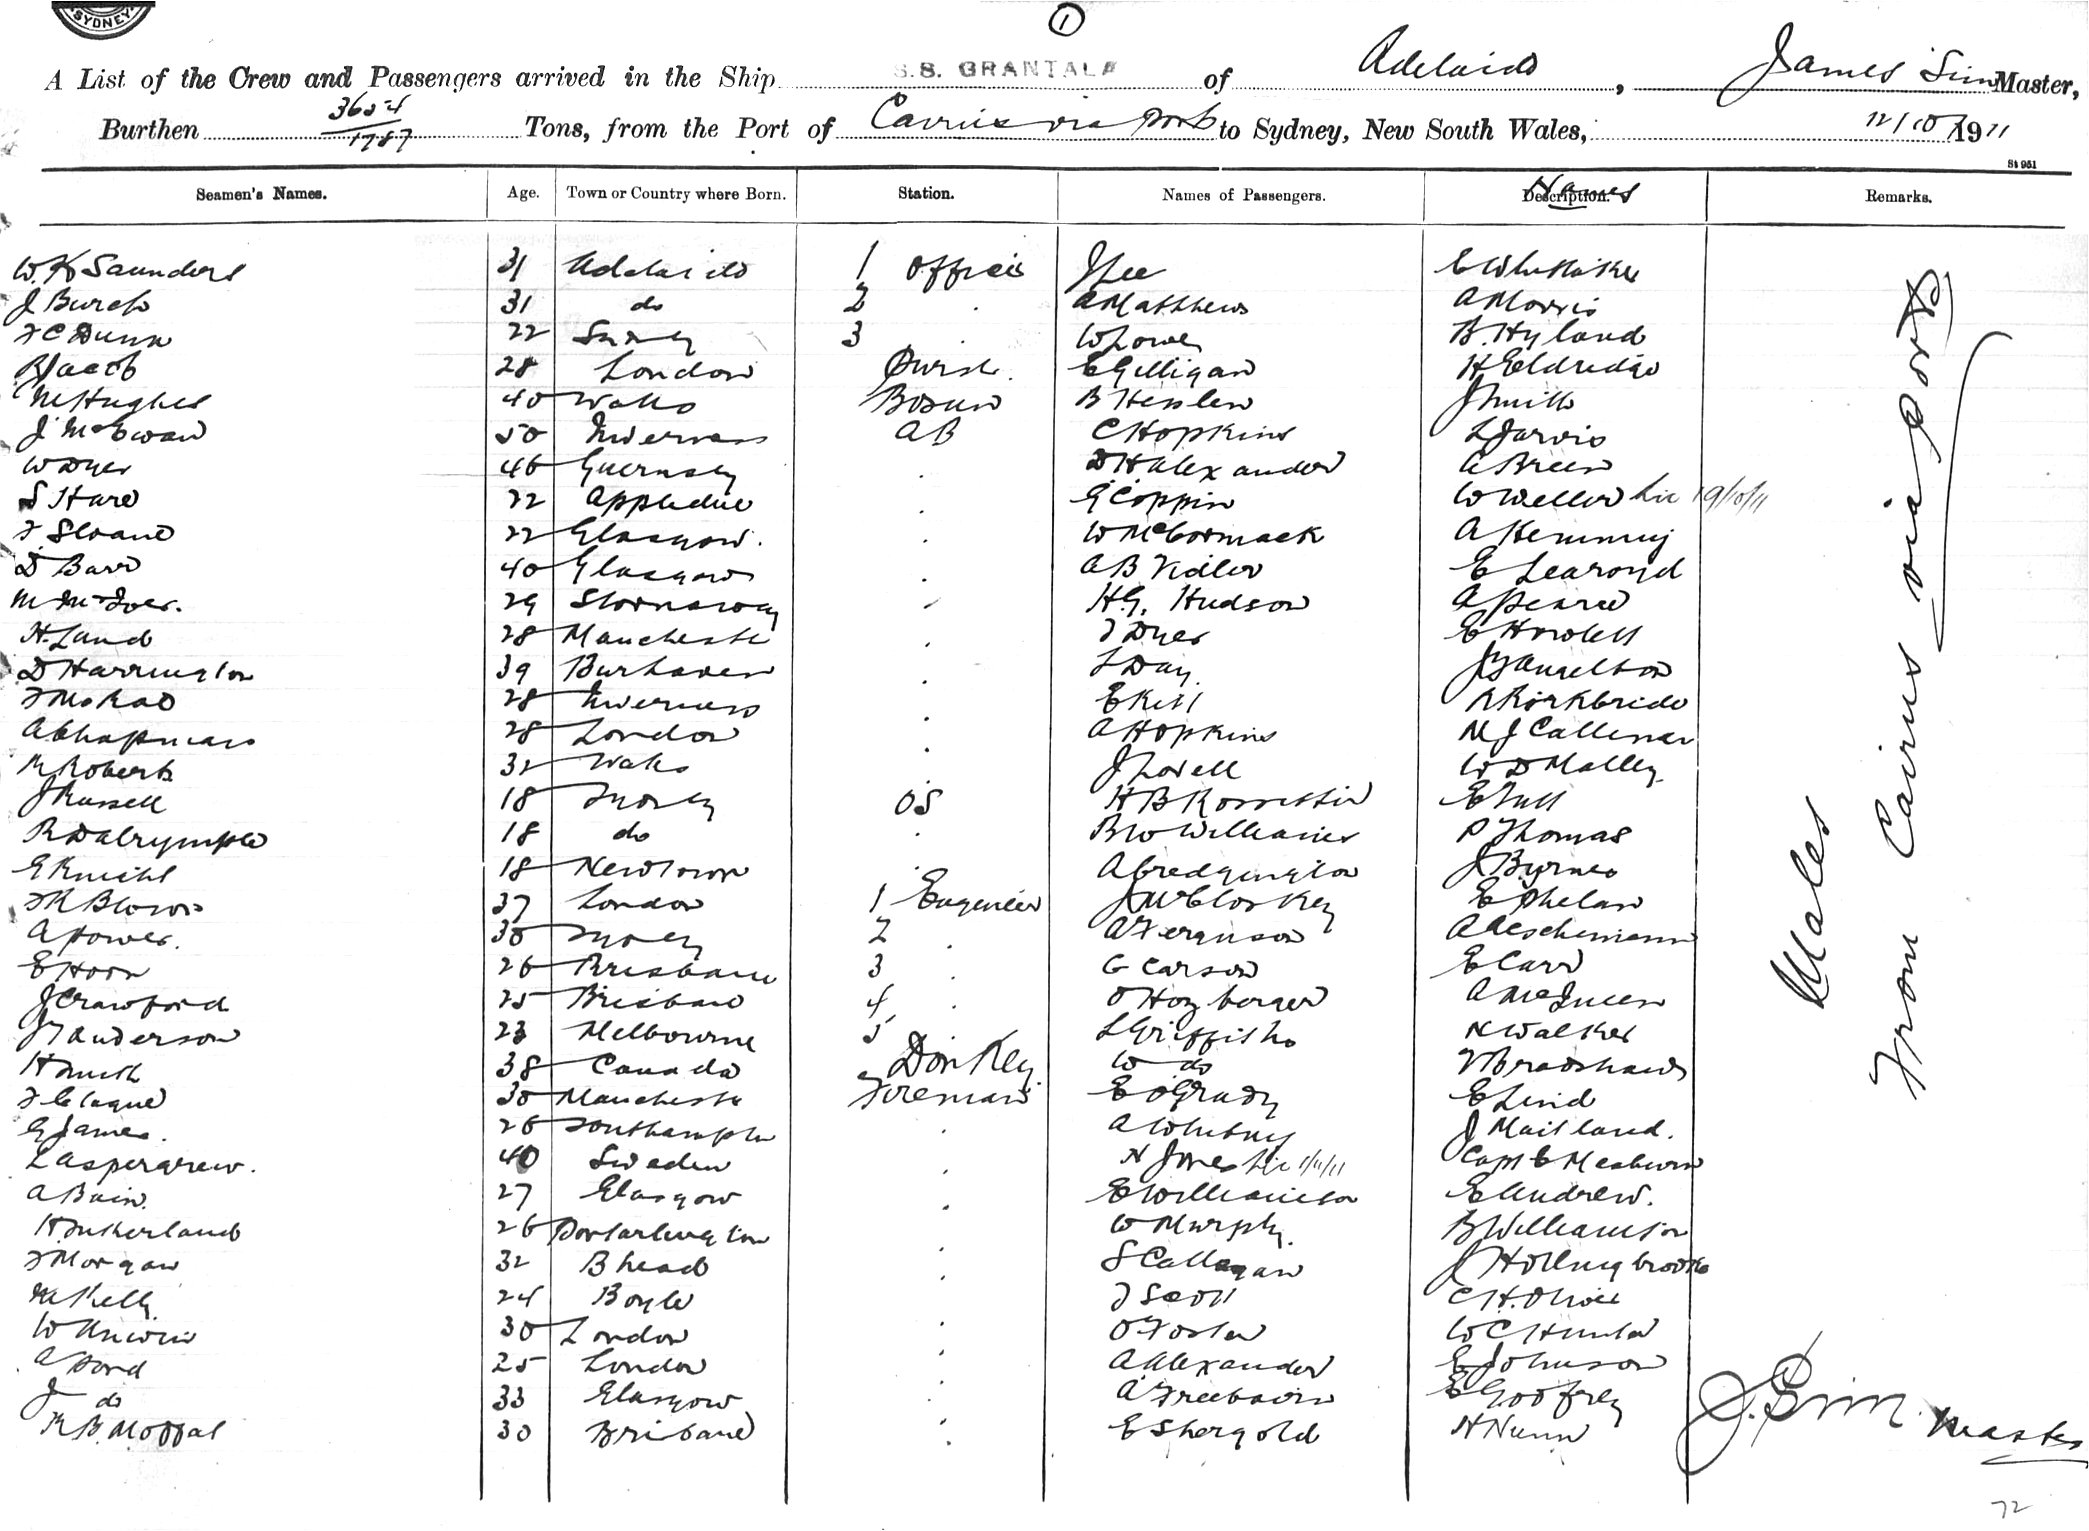 SYDNEY
1
A List of the Crew and Passengers arrived in the Ship S.S. GRANTALA of Adelaide, James Sim Master,
Burthen 3654 / 1787 Tons, from the Port of Cairns via Ports to Sydney, New South Wales, 12/10/1911
St 951
Seamen's Names. Age. Town or Country where Born. Station. Names of Passengers. Description. Names Remarks.
W. K Saunders 31 Adelaide 1 Officer J Lee E Whittaker
J Burch 31 do 2 . A Matthews A Morris
F C Dunn 22 Sydney 3 W Lowe B. Hyland
R Jacob 28 London Purser E Gilligan H Eldridge
M Hughes 40 Wales Bosun B Heslen J Smith
J McEwan 50 Inverness AB C Hopkins L Jarvis
W Dyer 46 Guernsey . D H Alexander A Breen
S Hare 22 Appledue . G Coppin W Weller 19/10/11
F Sloane 22 Glasgow. . W McCormack A Hemming
D Barr 40 Glasgow . A B Vidler E Learoyd
M McIver. 29 Stornoway . H.G. Hudson A Pearce
H. Land 28 Manchester . J Dyer E Howlett
D Harrington 39 . L Day
F McRae 28 Inverness . E Kell R Kirkbride
A Chapman 28 London . A Hopkins
R Roberts 32 Wales . J Lovell W D Malley
J Russell 18 Sydney OS H B E Tull
R Dalrymple 18 do . B W Williams P Thomas
E Knight 18 Newtown . A Bredgington J Byrnes
37 London 1 Engineer J McCloskey E Phelan
A Power. 30 Sydney 2 . A Ferguson A Aeschimann
E Horn 26 Brisbane 3 . G Carson E Carr
J Crawford 25 Brisbane 4 . A McInnes
J Anderson 23 Melbourne 5 . L Griffiths N Walker
H Smith 38 Canada Donkey W do Bradshaw
F Clague 30 Manchester Foreman E OGrady E Lind
G James. 26 Southampton . A Whitney J Maitland.
L Aspergrew. 40 Sweden . N Jones 1/11/11 Capt E
A Bain. 27 Glasgow . E Williamson E Andrew.
H Sutherland 26 Portarlington . W Murphy. B Williamson
F Morgan 32 B head . S Callagan J Hollingbrooke
M Kelly 24 Boyle . J Scott C H. Oliver
W Unwin 30 London . O Foster W C Hunter
A Pond 25 London . A Alexander E Johnson
J do 33 Glasgow . A Freebairn E Godfrey
R B. Moffat 30 Brisbane . E Shergold H Nunn
Males
From Cairns via Ports
J. Sim. Master
72